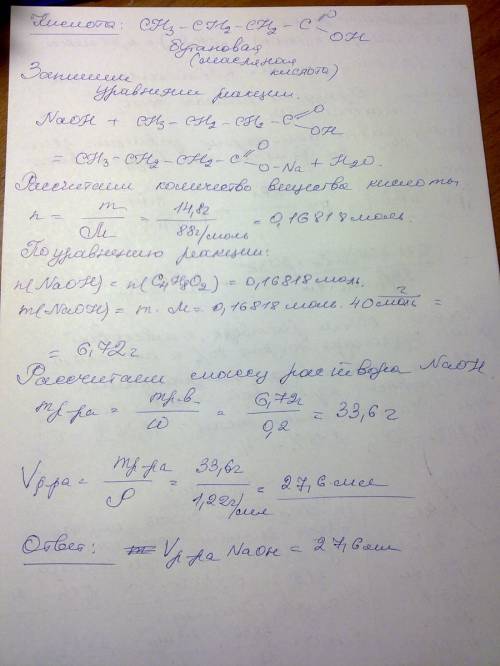 Кислота: CH3-CH2-CH2-C=O-OH
бутановая
(масляная кислота)
Запишем
уравнение реакции.
NaOH + CH3-CH2-CH2-C=O-OH
= CH3-CH2-CH2-C=O-O-Na + H2O.
Рассчитаем количество вещества кислоты
n = m/M = 14,8г/88г/моль = 0,16818 моль.
По уравнению реакции:
n(NaOH) = n(C4H8O2) = 0,16818 моль.
m(NaOH) = m · M = 0,16818 моль · 40 г/моль =
= 6,72 г
Рассчитаем массу раствора NaOH.
mр-ра = mр.в./ω = 6,72г/0,2 = 33,6 г
Vр-ра = mр-ра/ρ = 33,6г/1,22г/мл = 27,6 мл
Ответ: Vр-ра NaOH = 27,6 мл